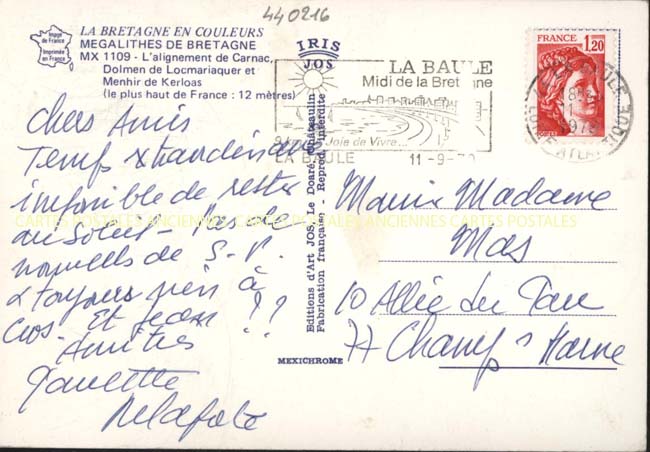 440216
LA BRETAGNE EN COULEURS
MEGALITHES DE BRETAGNE
MX 1109 - L'alignement de Carnac,
Dolmen de Locmariaquer et
Menhir de Kerloas
(le plus haut de France : 12 mètres)
Image de France
Imprimée en France
IRIS
JOS
LA BAULE
Midi de la Bretagne
Joie de Vivre...
LA BAULE 11-9-
FRANCE 1,20
LA BAULE
LOIRE ATLANTIQUE
Chers Amis
Temps
impossible de rester
au Soleil. Pas de
nouvelles de S-P.
toujours rien à
Cros. Et Jean ??
Amitiés
Paulette
Editions d'Art JOS, Le Doaré, Châteaulin
Fabrication française - Reprod. interdite
MEXICHROME
CARTES POSTALES ANCIENNES CARTES POSTALES ANCIENNES CARTES POSTALES
Madame
Mas
10 Allée du Parc
77 Champs s Marne